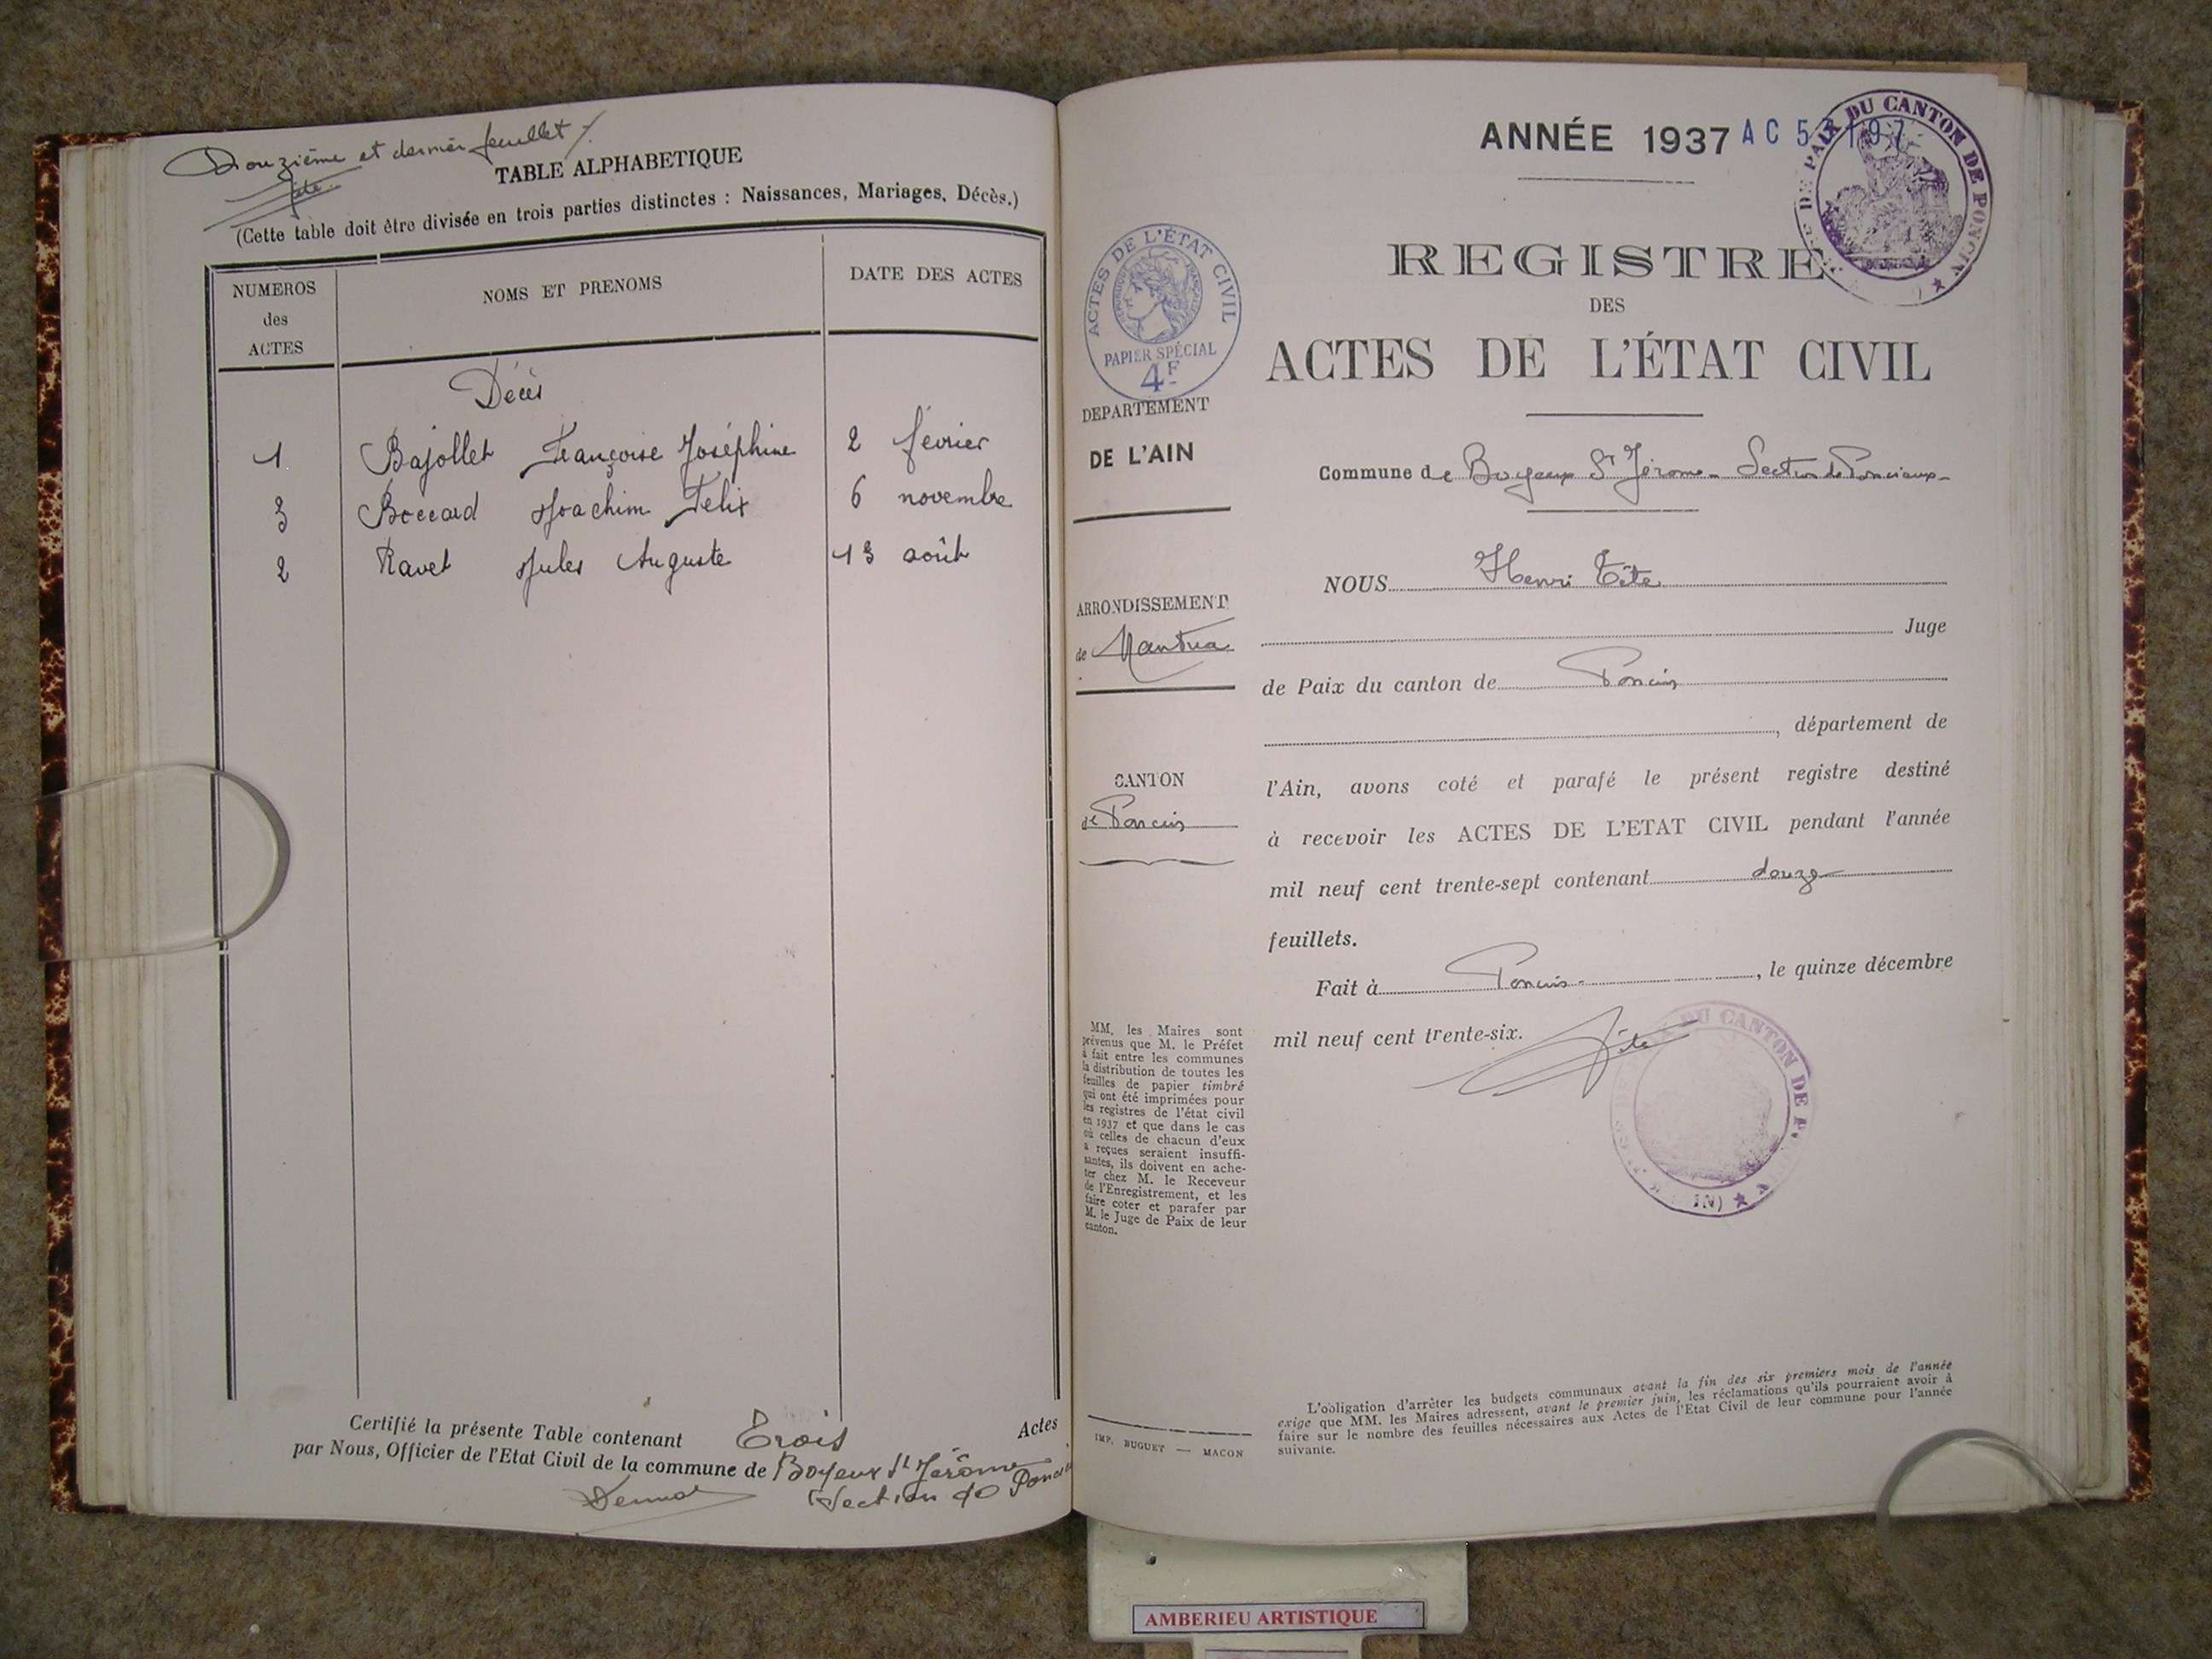 Douzième et dernier feuillet
Tête
TABLE ALPHABETIQUE
(Cette table doit être divisée en trois parties distinctes : Naissances, Mariages, Décès.)
NUMEROS
des
ACTES
NOMS ET PRENOMS
DATE DES ACTES
Décès
1 Bajollet Françoise Joséphine 2 février
3 Boccard Joachim Felix 6 novembre
2 Ravet Jules Auguste 13 août
Certifié la présente Table contenant Trois Actes
par Nous, Officier de l'Etat Civil de la commune de Boyeux St Jérôme
Section de
ANNÉE 1937
AC 5 197
DE PAIX DU CANTON DE PONCIN
REGISTRE
DES
ACTES DE L'ÉTAT CIVIL
ACTES DE L'ÉTAT CIVIL
RÉPUBLIQUE FRANÇAISE
PAPIER SPÉCIAL
4F
DEPARTEMENT
DE L'AIN
ARRONDISSEMENT
de Nantua
CANTON
de Poncin
MM. les Maires sont
prévenus que M. le Préfet
a fait entre les communes
la distribution de toutes les
feuilles de papier timbré
qui ont été imprimées pour
les registres de l'état civil
en 1937 et que dans le cas
où celles de chacun d'eux
a reçues seraient insuffi-
santes, ils doivent en ache-
ter chez M. le Receveur
de l'Enregistrement, et les
faire coter et parafer par
M. le Juge de Paix de leur
canton.
IMP. BUGUET — MACON
Commune de Boyeux St Jérome - Section de Poncieux -
NOUS Henri Tête
Juge
de Paix du canton de Poncin
, département de
l'Ain, avons coté et parafé le présent registre destiné
à recevoir les ACTES DE L'ETAT CIVIL pendant l'année
mil neuf cent trente-sept contenant douze
feuillets.
Fait à Poncin , le quinze décembre
mil neuf cent trente-six. Tête
DU CANTON DE
L'obligation d'arrêter les budgets communaux avant la fin des six premiers mois de l'année
exige que MM. les Maires adressent, avant le premier juin, les réclamations qu'ils pourraient avoir à
faire sur le nombre des feuilles nécessaires aux Actes de l'Etat Civil de leur commune pour l'année
suivante.
AMBERIEU ARTISTIQUE